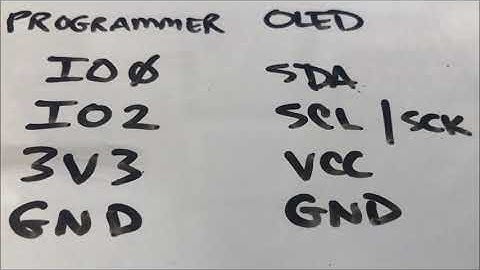 PROGRAMMER OLED
IO0 SDA
IO2 SCL/SCK
3V3 VCC
GND GND